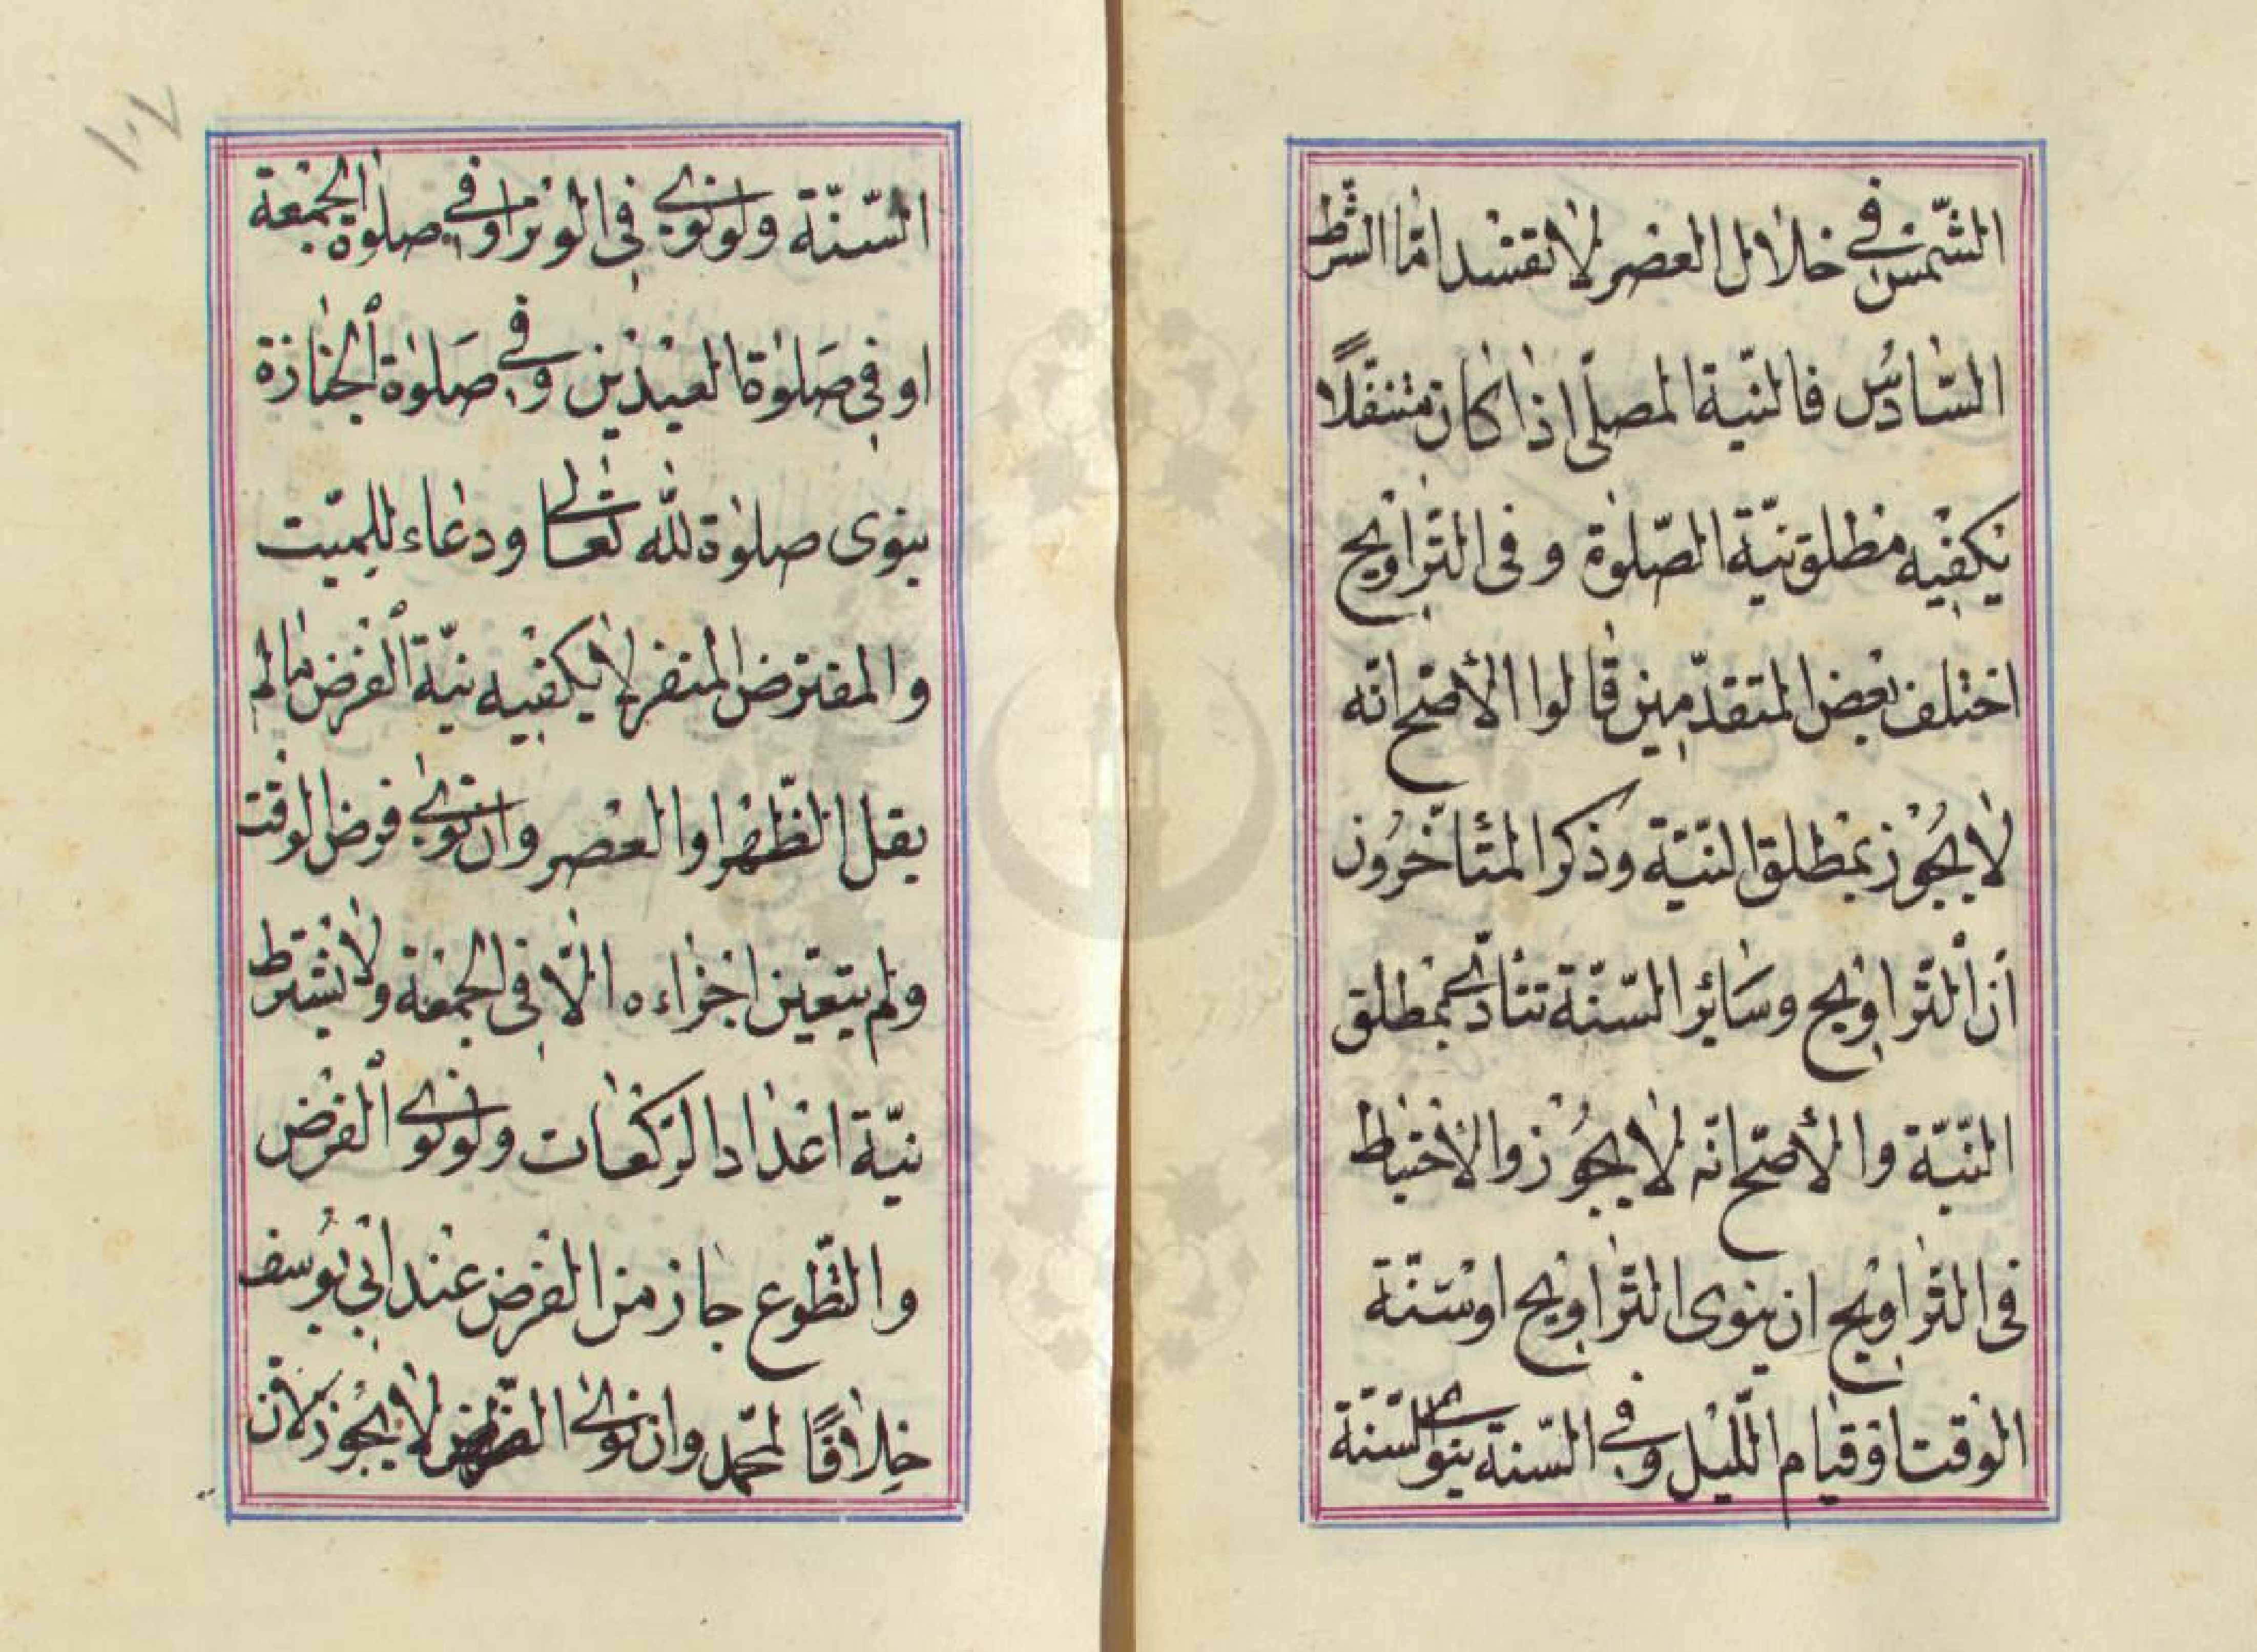 الشّمس في خلال العصر لا تفسد امّا الشّرط
السّادس فالنيّة المصلّى اذا كان متنفّلًا
يكفيه مطلق نيّة الصّلوة وفى التّراويح
اختلف بعض المتقدّمين قالوا الأصحّ انّه
لا يجُوز بمطلق النيّة وذكر المتأخّرُون
أن التّراويح وسَائر السّنّة تتأدّى بمطلق
النّيّة والأصحّ انّه لا يجُوز والاحتياط
فى التّراويح ان ينوى التّراويح او سنّة
الوقت او قيام اللّيل وفي السّنة ينوى السّنّة
السّنّة ولو نوى في الوتر او في صلوة الجمعة
او في صَلوٰة العيدين وفي صَلوٰة الجنازة
ينوى صلوٰة للّه تعالى ودعاء للميّت
والمفترض المنفرد لا يكفيه نيّة الفرض ما لم
يقل الظّهر او العصر وان نوى فرض الوقت
ولم يتعيّن اجزاءه الّا فى الجمعة ولا يشترط
نيّة اعداد الرّكعات ولو نوى الفرض
والتّطوع جاز من الفرض عند ابى يُوسف
خِلافًا لمحّمد وان نوى لا يجُوز لانّ
١٠٧